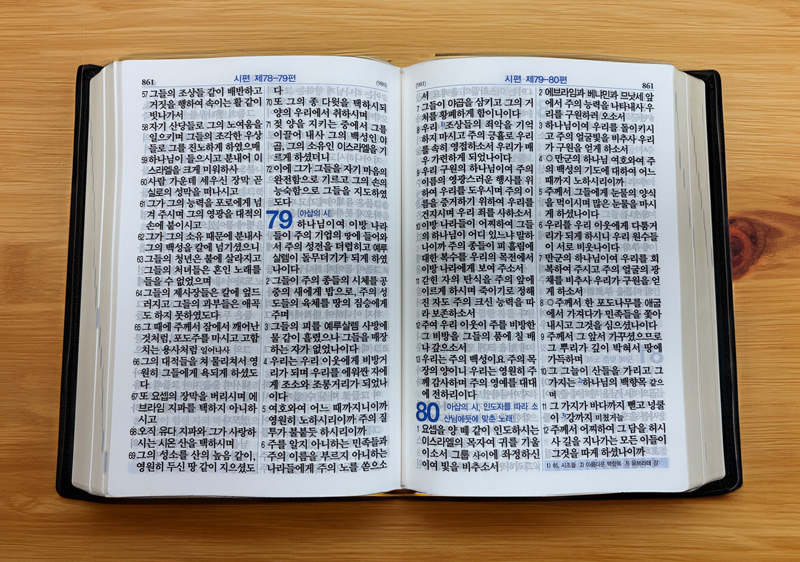 861
시편 제78-79편
57 그들의 조상들 같이 배반하고
거짓을 행하여 속이는 활 같이
빗나가서
58 자기 산당들로 그의 노여움을
일으키며 그들의 조각한 우상
들로 그를 진노하게 하였으매
59 하나님이 들으시고 분내어 이
스라엘을 크게 미워하사
60 사람 가운데 세우신 장막 곧
실로의 성막을 떠나시고
61 그가 그의 능력을 포로에게 넘
겨 주시며 그의 영광을 대적의
손에 붙이시고
62 그가 그의 소유 때문에 분내사
그의 백성을 칼에 넘기셨으니
63 그들의 청년은 불에 살라지고
그들의 처녀들은 혼인 노래를
들을 수 없었으며
64 그들의 제사장들은 칼에 엎드
러지고 그들의 과부들은 애곡
도 하지 못하였도다
65 그 때에 주께서 잠에서 깨어난
것처럼, 포도주를 마시고 고함
치는 용사처럼 일어나사
66 그의 대적들을 쳐 물리쳐서 영
원히 그들에게 욕되게 하셨도
다
67 또 요셉의 장막을 버리시며 에
브라임 지파를 택하지 아니하
시고
68 오직 유다 지파와 그가 사랑하
시는 시온 산을 택하시며
69 그의 성소를 산의 높음 같이,
영원히 두신 땅 같이 지으셨도
다
70 또 그의 종 다윗을 택하시되
양의 우리에서 취하시며
71 젖 양을 지키는 중에서 그를
이끌어 내사 그의 백성인 야
곱, 그의 소유인 이스라엘을 기
르게 하셨더니
72 이에 그가 그들을 자기 마음의
완전함으로 기르고 그의 손의
능숙함으로 그들을 지도하였
도다
79 [아삽의 시]
하나님이여 이방 나라
들이 주의 기업의 땅에 들어와
서 주의 성전을 더럽히고 예루
살렘이 돌무더기가 되게 하였
나이다
2 그들이 주의 종들의 시체를 공
중의 새에게 밥으로, 주의 성
도들의 육체를 땅의 짐승에게
주며
3 그들의 피를 예루살렘 사방에
물 같이 흘렸으나 그들을 매장
하는 자가 없었나이다
4 우리는 우리 이웃에게 비방거
리가 되며 우리를 에워싼 자에
게 조소와 조롱거리가 되었나
이다
5 여호와여 어느 때까지니이까
영원히 노하시리이까 주의 질
투가 불붙듯 하시리이까
6 주를 알지 아니하는 민족들과
주의 이름을 부르지 아니하는
나라들에게 주의 노를 쏟으소
시편 제79-80편
861
서
7 그들이 야곱을 삼키고 그의 거
처를 황폐하게 함이니이다
8 우리 조상들의 죄악을 기억
하지 마시고 주의 긍휼로 우리
를 속히 영접하소서 우리가 매
우 가련하게 되었나이다
9 우리 구원의 하나님이여 주의
이름의 영광스러운 행사를 위
하여 우리를 도우시며 주의 이
름을 증거하기 위하여 우리를
건지시며 우리 죄를 사하소서
10 이방 나라들이 어찌하여 그들
의 하나님이 어디 있느냐 말하
나이까 주의 종들이 피 흘림에
대한 복수를 우리의 목전에서
이방 나라에게 보여 주소서
11 갇힌 자의 탄식을 주의 앞에
이르게 하시며 죽이기로 정해
진 자도 주의 크신 능력을 따
라 보존하소서
12 주여 우리 이웃이 주를 비방한
그 비방을 그들의 품에 칠 배
나 갚으소서
13 우리는 주의 백성이요 주의 목
장의 양이니 우리는 영원히 주
께 감사하며 주의 영예를 대대
에 전하리이다
80 [아삽의 시, 인도자를 따라 소
산님에둣에 맞춘 노래]
1 요셉을 양 떼 같이 인도하시는
이스라엘의 목자여 귀를 기울
이소서 그룹 사이에 좌정하신
이여 빛을 비추소서
2 에브라임과 베냐민과 므낫세 앞
에서 주의 능력을 나타내사 우
리를 구원하러 오소서
3 하나님이여 우리를 돌이키시
고 주의 얼굴빛을 비추사 우리
가 구원을 얻게 하소서
4 만군의 하나님 여호와여 주
의 백성의 기도에 대하여 어느
때까지 노하시리이까
5 주께서 그들에게 눈물의 양식
을 먹이시며 많은 눈물을 마시
게 하셨나이다
6 우리를 우리 이웃에게 다툼거
리가 되게 하시니 우리 원수들
이 서로 비웃나이다
7 만군의 하나님이여 우리를 회
복하여 주시고 주의 얼굴의 광
채를 비추사 우리가 구원을 얻
게 하소서
8 주께서 한 포도나무를 애굽
에서 가져다가 민족들을 쫓아
내시고 그것을 심으셨나이다
9 주께서 그 앞서 가꾸셨으므로
그 뿌리가 깊이 박혀서 땅에
가득하며
10 그 그늘이 산들을 가리고 그
가지는 하나님의 백향목 같으
며
11 그 가지가 바다까지 뻗고 넝쿨
이 강까지 미쳤거늘
12 주께서 어찌하여 그 담을 허시
사 길을 지나가는 모든 이들이
그것을 따게 하셨나이까
1) 히, 시조들 2) 아름다운 백향목 3) 유브라데 강